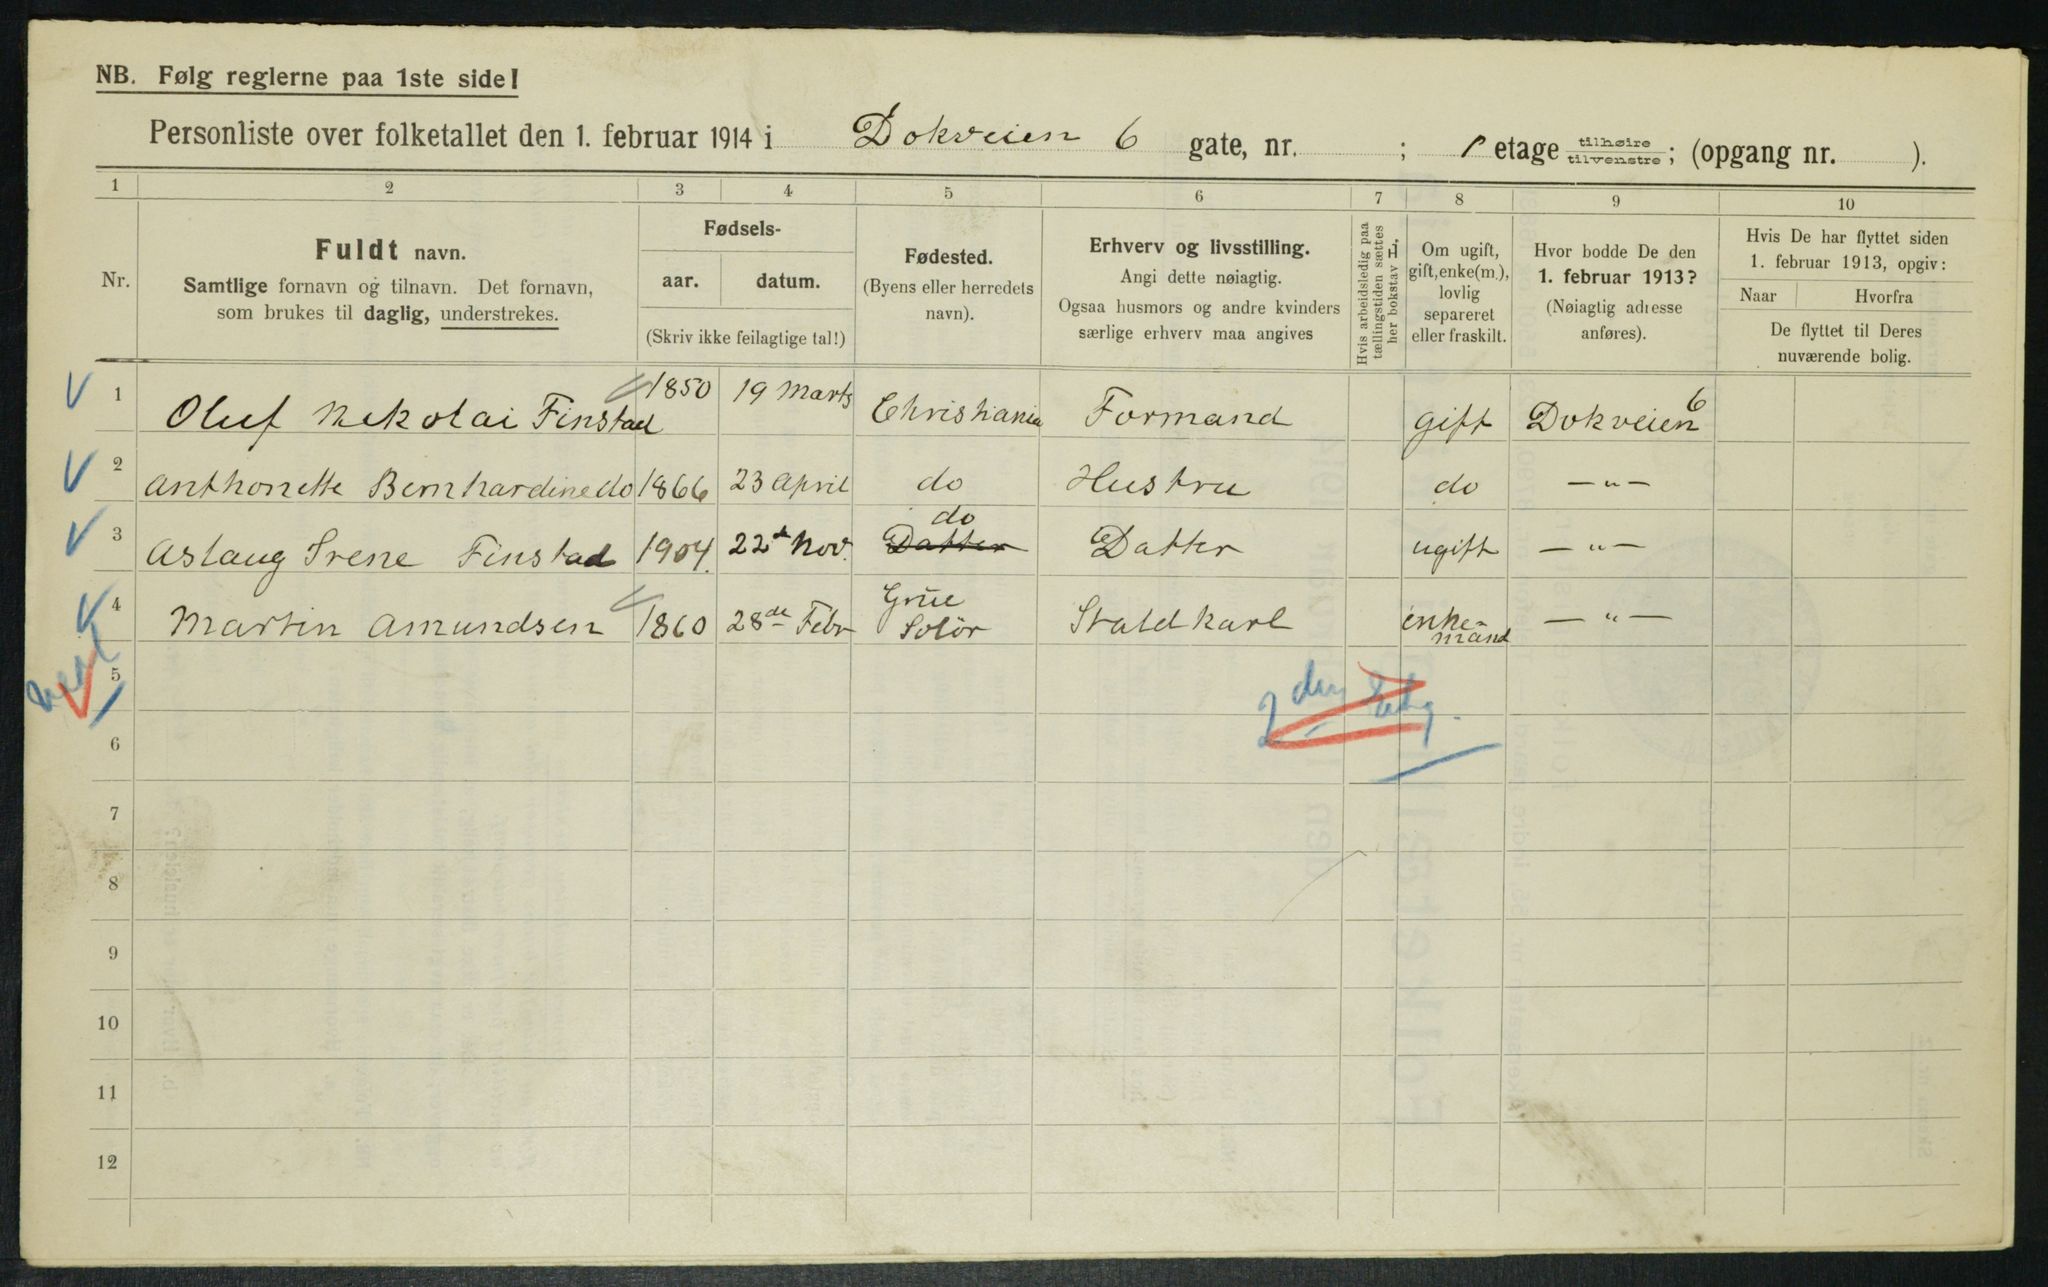 NB. Følg reglerne paa 1ste side!
Personliste over folketallet den 1. februar 1914 i Dokveien 6 gate, nr. ; 1 etage tilhøire tilvenstre; (opgang nr. ).
1 2 3 4 5 6 7 8 9 10
Nr.
Fuldt navn.
Samtlige fornavn og tilnavn. Det fornavn,
som brukes til daglig, understrekes.
Fødsels-
aar. datum.
(Skriv ikke feilagtige tal!)
Fødested.
(Byens eller herredets
navn).
Erhverv og livsstilling.
Angi dette nøiagtig.
Ogsaa husmors og andre kvinders
særlige erhverv maa angives
Hvis arbeidsledig paa
tællingstiden sættes
her bokstav L.
Om ugift,
gift, enke(m.),
lovlig
separeret
eller fraskilt.
Hvor bodde De den
1. februar 1913?
(Nøiagtig adresse
anføres).
Hvis De har flyttet siden
1. februar 1913, opgiv:
Naar Hvorfra
De flyttet til Deres
nuværende bolig.
1 Oluf Nikolai Finstad 1850 19 Marts Christiania Formand gift Dokveien 6
2 Anthonette Bernhardine do 1866 23 April do Hustru do — " —
3 Aslaug Irene Finstad 1904. 22 Nov. Datter do Datter ugift — " —
4 Martin Amundsen 1860 28de Febr Grue Solør Staldkarl enkemand — " —
5
6
7
8
9
10
11
12